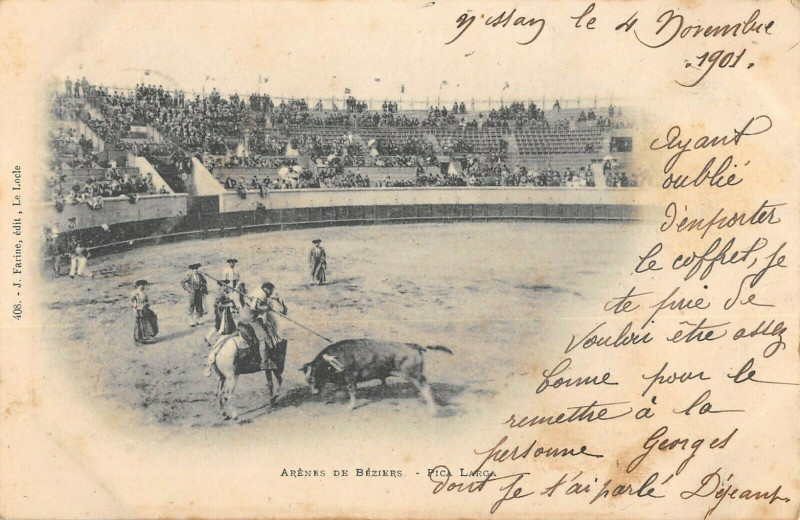 Nissan le 4 Novembre
1901.
Ayant
oublié
d'emporter
le coffret, je
te prie de
vouloir être assez
bonne pour le
remettre à la
personne Georges
dont je t'ai parlé Déjeant
ARÈNES DE BÉZIERS. - PICA LARGA
408. - J. Farine, édit., Le Locle